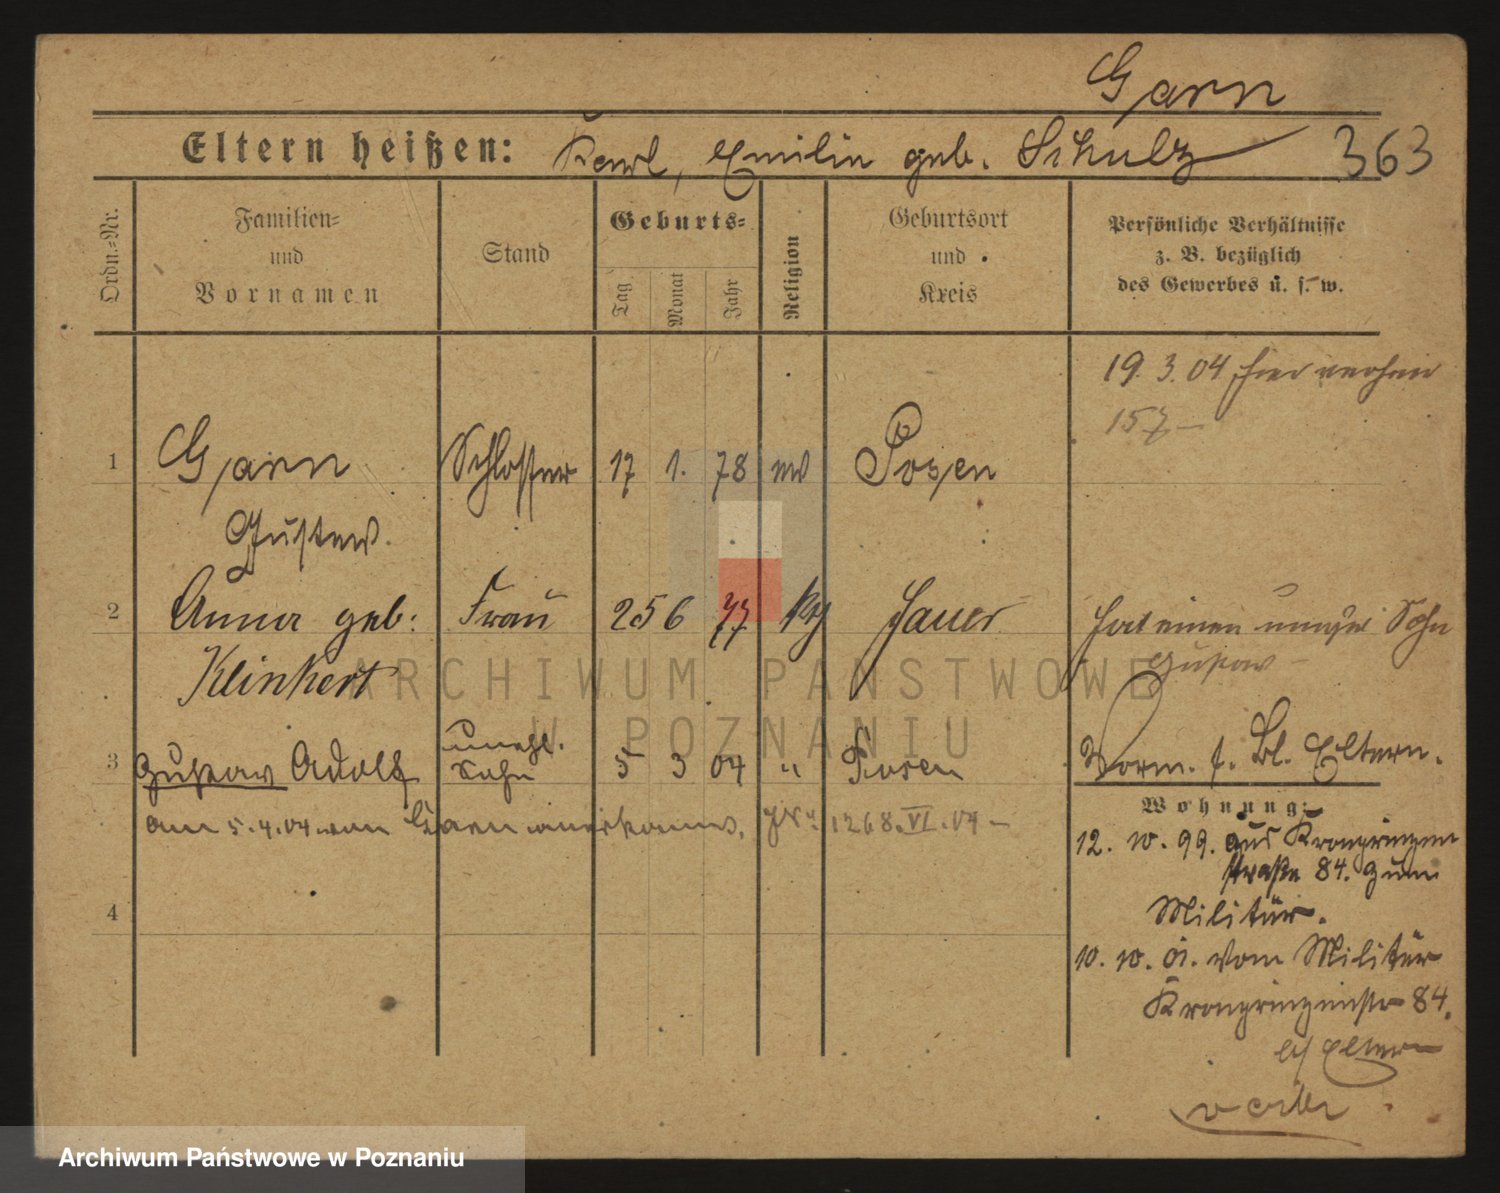 Garn
Eltern heißen: Karl, Emilie geb. Schulz 363
Ordn.-Nr.
Familien-
und
Vornamen
Stand
Geburts-
Tag
Monat
Jahr
Religion
Geburtsort
und
Kreis
Persönliche Verhältnisse
z. B. bezüglich
des Gewerbes u. s. w.
19. 3. 04 hier verheir
157
1 Garn Schlosser 17 1. 78 ev Posen
Gustav.
2 Anna geb: Frau 25 6 77 kth Jauer hat einen unehel Sohn
Gustav
Klinkert
3 Gustav Adolf unehl. Sohn 5 3 04 " Posen
Vorm. s. Bl. Eltern.
am 5.4.04 von Garn anerkannt. 1268.VI.04
Wohnung:
12. 10. 99. aus Kronprinzen
straße 84. zum
Militär.
4
10. 10. 01. vom Militär
Kronprinzenstr 84.
b/ Eltern
ARCHIWUM PAŃSTWOWE
W POZNANIU
Archiwum Państwowe w Poznaniu